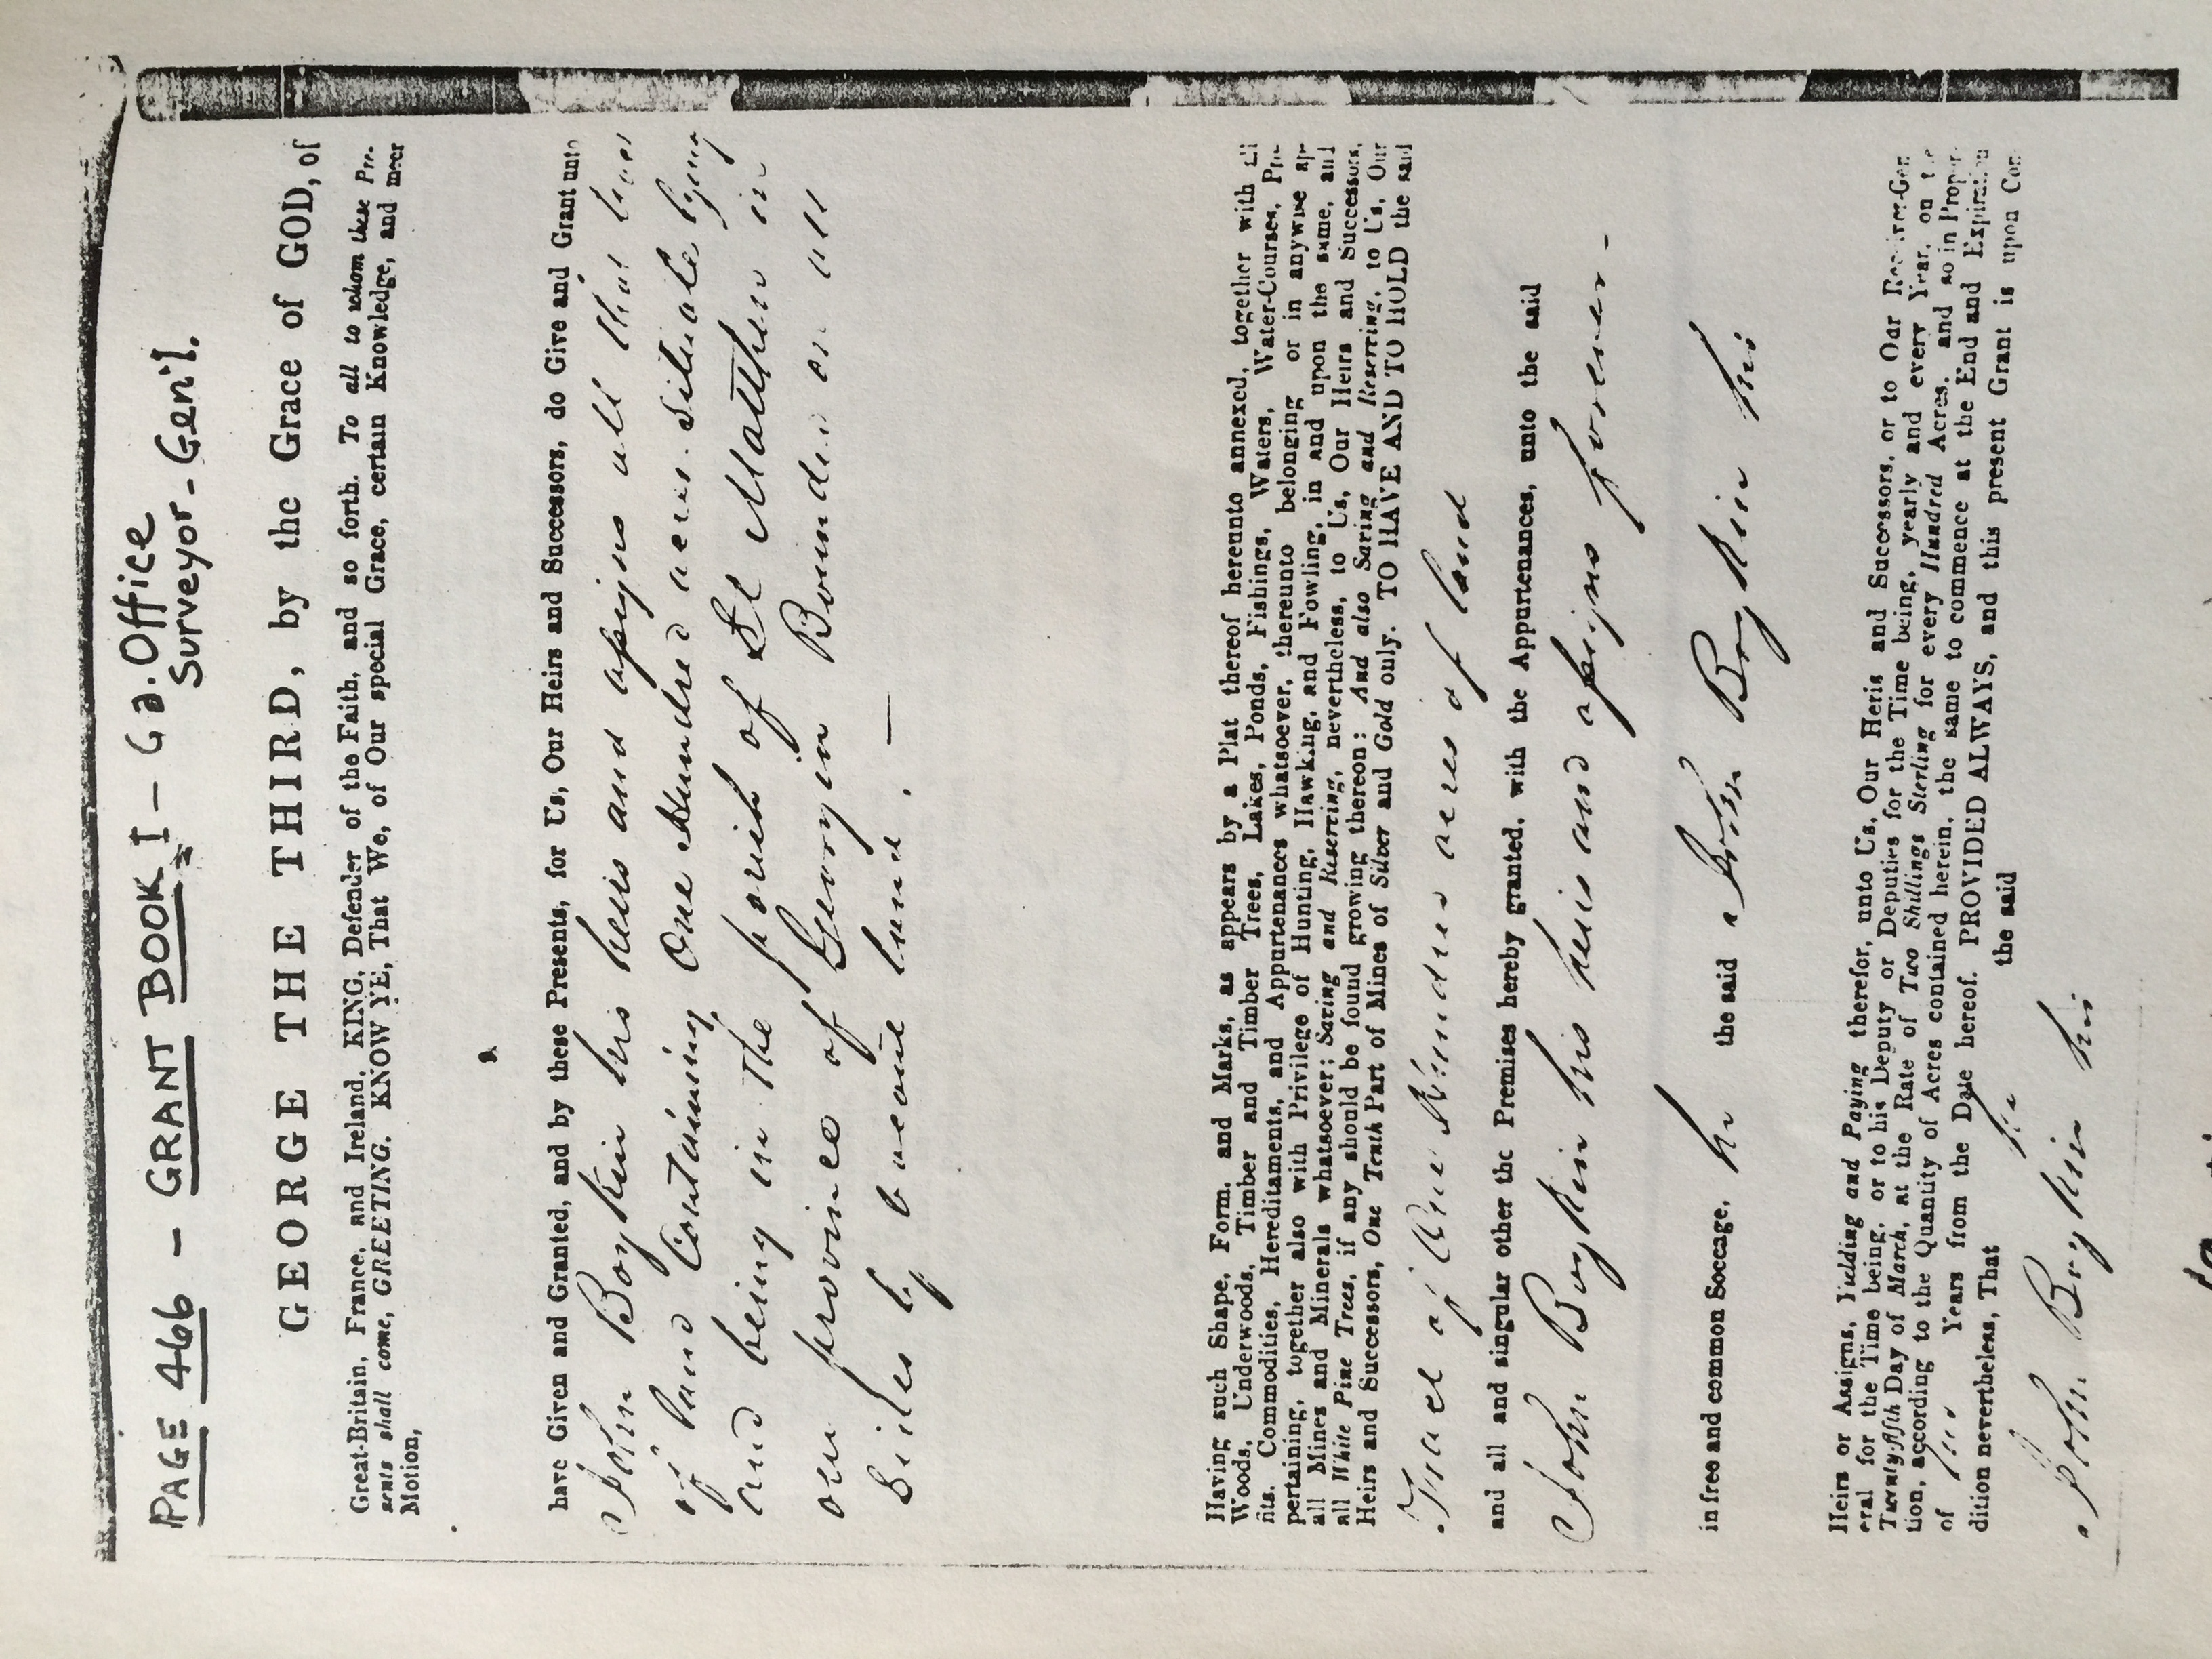 PAGE 466 - GRANT BOOK I - Ga. Office
Surveyor-Gen'l.
GEORGE THE THIRD, by the Grace of GOD, of
Great-Britain, France, and Ireland, KING, Defender of the Faith, and so forth. To all to whom these Pre-
sents shall come, GREETING. KNOW YE, That We, of Our special Grace, certain Knowledge, and meer
Motion,
have Given and Granted, and by these Presents, for Us, Our Heirs and Successors, do Give and Grant unto
John Boykin his heirs and assigns all that
of land Containing One Hundred acres situate lying
and being in the parish of St Matthew in
our province of Georgia Bounded on all
Sides by vacant land. —
Having such Shape, Form, and Marks, as appears by a Plat thereof hereunto annexed, together with all
Woods, Underwoods, Timber and Timber Trees, Lakes, Ponds, Fishings, Waters, Water-Courses, Pro-
fits, Commodities, Hereditaments, and Appurtenances whatsoever, thereunto belonging or in anywise ap-
pertaining, together also with Privilege of Hunting, Hawking, and Fowling, in and upon the same, and
all Mines and Minerals whatsoever; Saving and Reserving, nevertheless, to Us, Our Heirs and Successors,
all White Pine Trees, if any should be found growing thereon: And also Saving and Reserving, to Us, Our
Heirs and Successors, One Tenth Part of Mines of Silver and Gold only. TO HAVE AND TO HOLD the said
Tract of One Hundred acres of land
and all and singular other the Premises hereby granted, with the Appurtenances, unto the said
John Boykin his heirs and assigns forever -
in free and common Soccage, he the said John Boykin his
Heirs or Assigns, Yielding and Paying therefor, unto Us, Our Heris and Successors, or to Our Receiver-Gen
eral for the Time being, or to his Deputy or Deputies for the Time being, yearly and every Year, on the
Twenty-fifth Day of March, at the Rate of Two Shillings Sterling for every Hundred Acres, and so in Propor-
tion, according to the Quantity of Acres contained herein, the same to commence at the End and Expiration
of Years from the Date hereof. PROVIDED ALWAYS, and this present Grant is upon Con-
dition nevertheless, That he the said
John Boykin his